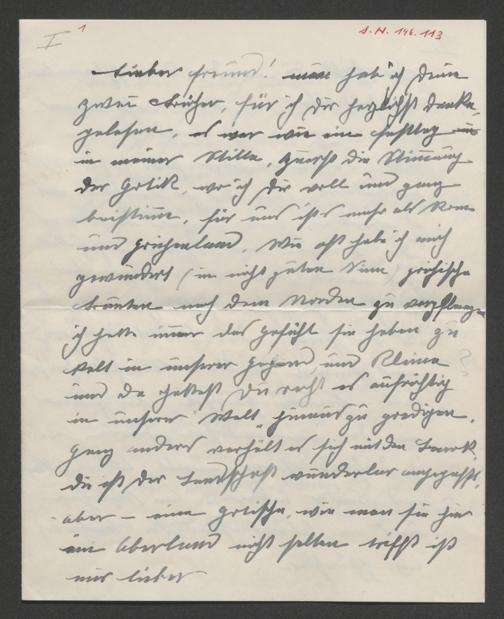 I 1
S.N. 146.113
Lieber Freund! nun hab ich Deine
zwei Bücher, für ich Dir herzlichst danke,
gelesen, es war wie ein Festtag
in meiner Stille, zuerst die Stimmung
der Gotik, wo ich Dir voll und ganz
beistimme, für uns ists mehr als Rom
und Griechenland. Wie oft habe ich mich
gewundert (im nicht guten Sinn) grichische
Bauten nach dem Norden zu verpflanzen
ich hatte immer das Gefühl sie haben zu
kalt in unserer Gegend und Klima
und da hattest Du recht es aufrichtig
in unserer Welt hinaus zu predigen.
Ganz anders verhält es sich mit den
die ist der Landschaft wunderbar angepasst,
aber – eine gotische, wie man sie hier
im Oberland nicht selten trifft ist
mir lieber